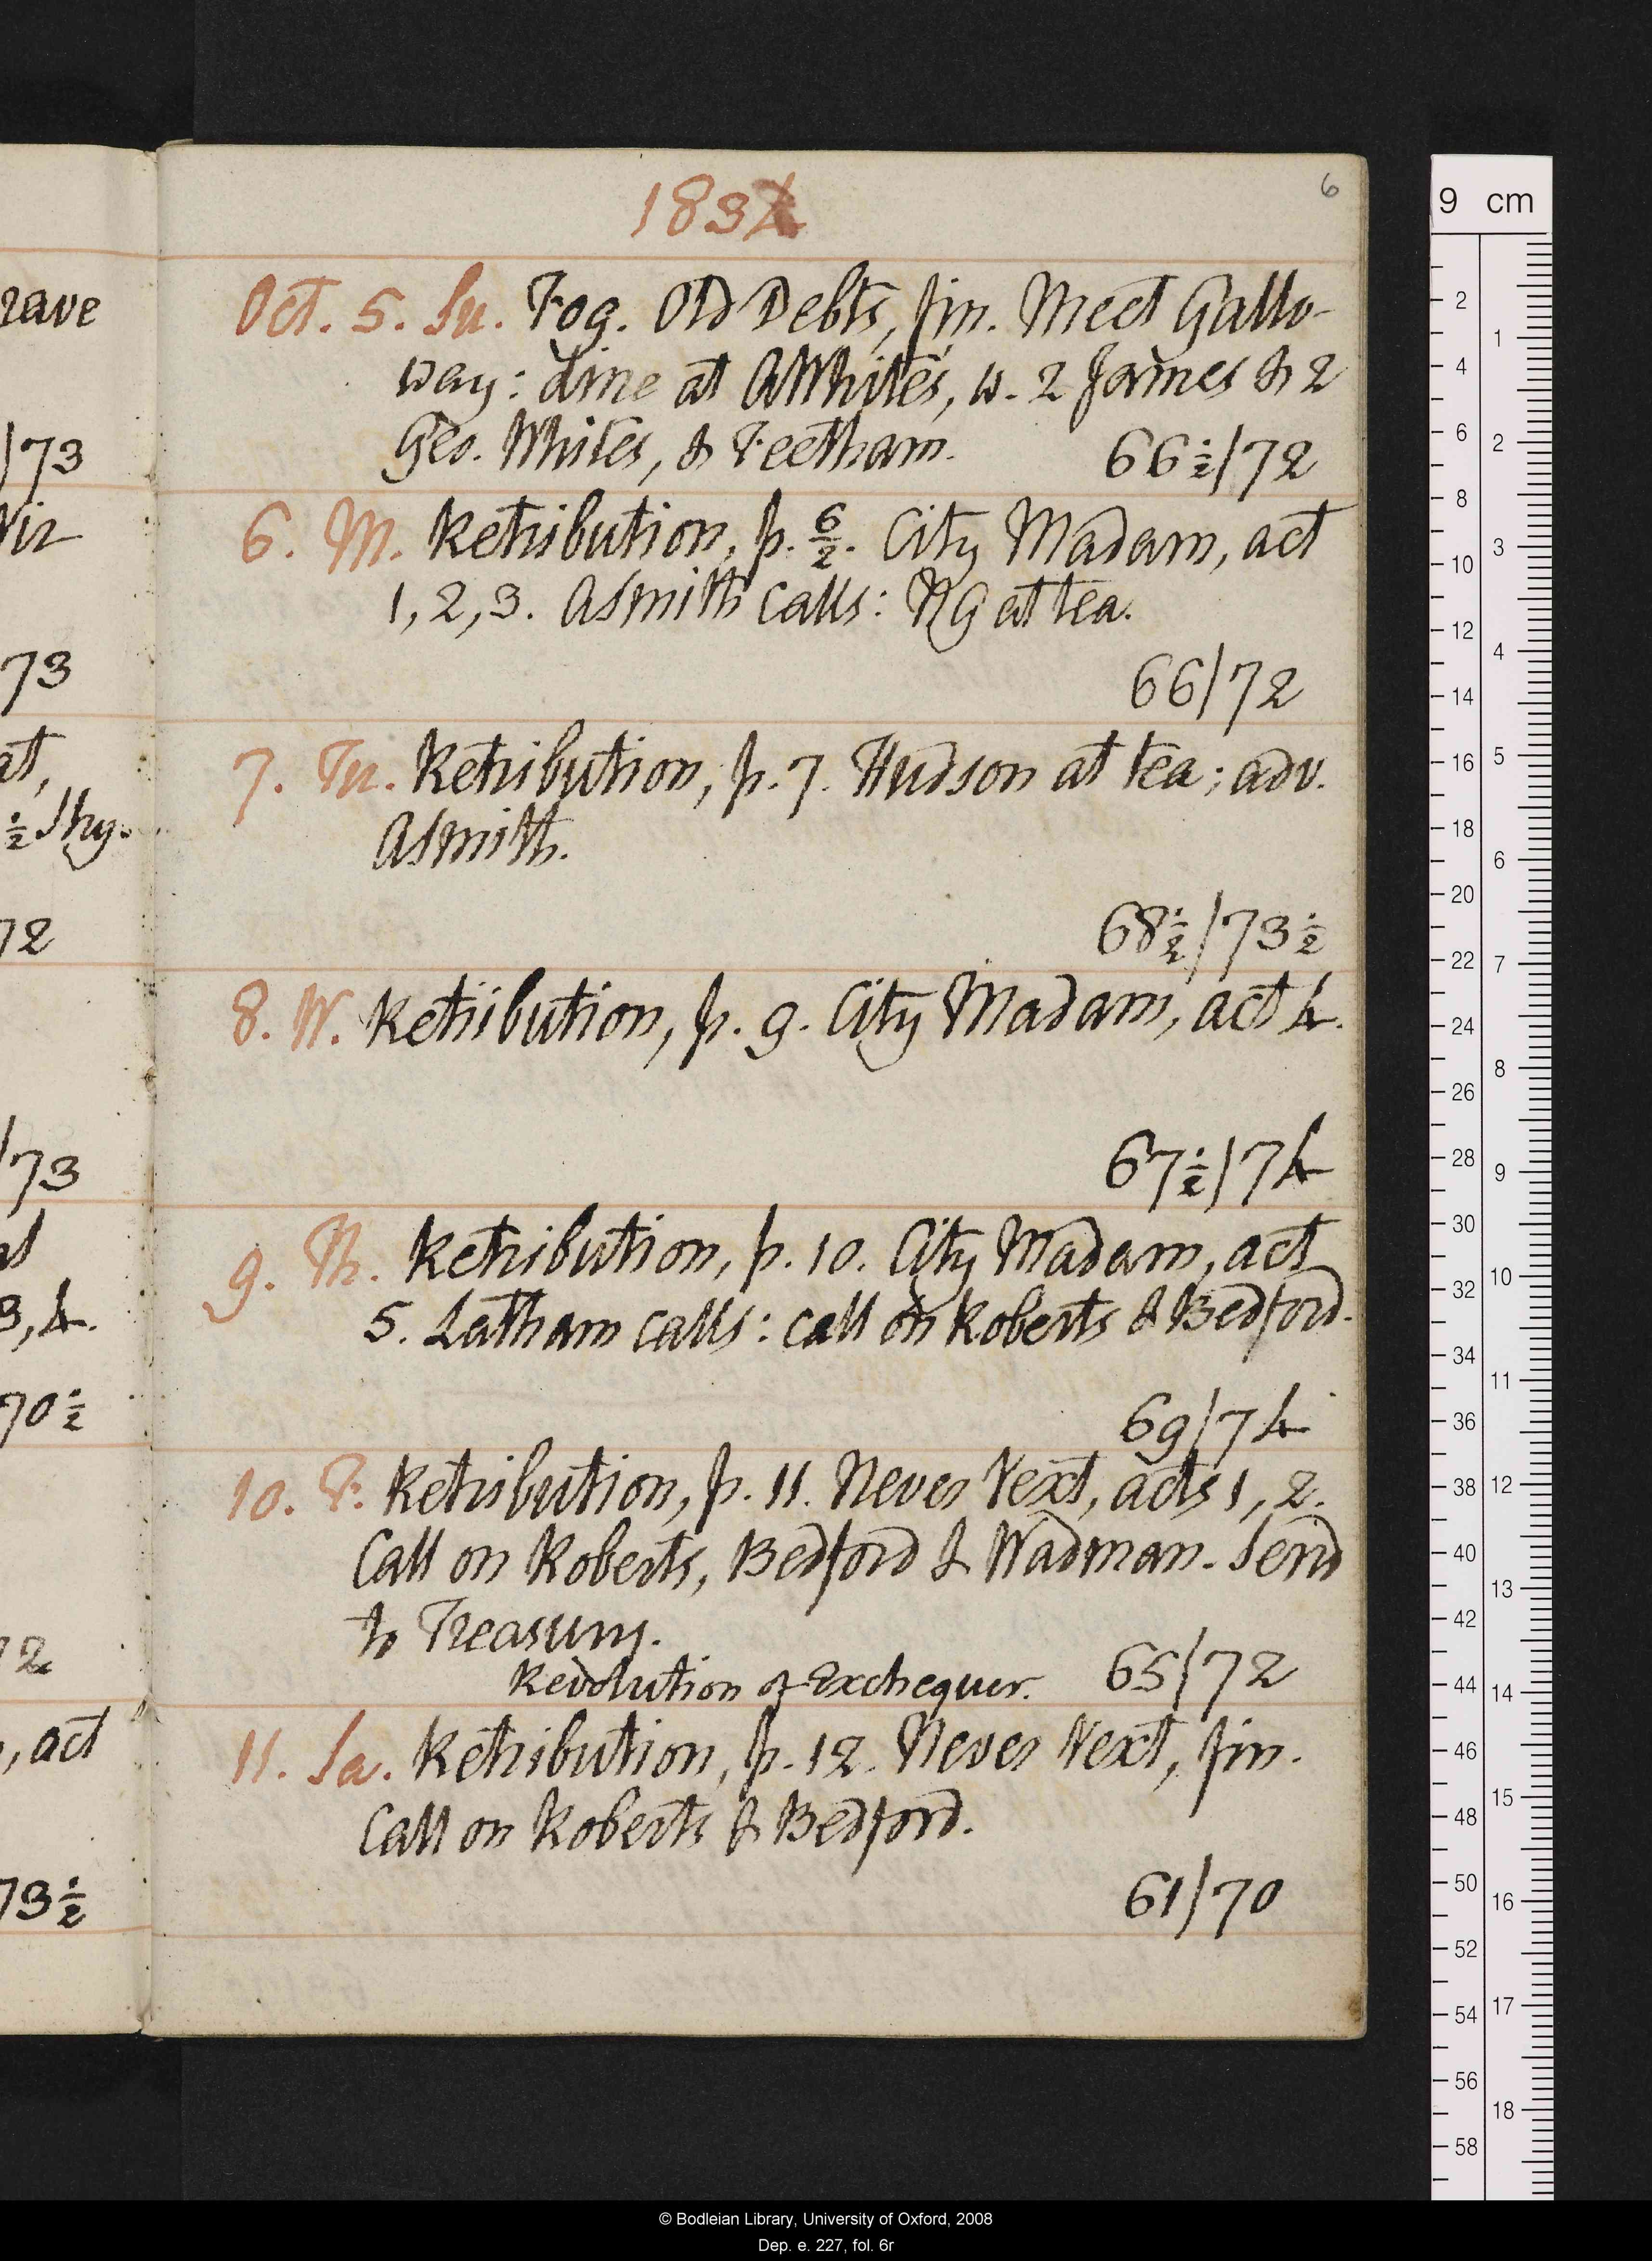 rave
/73
Vir
73
at,
½ Shy.
72
/73
3, 4.
70½
72
, act
73½
1834
6
Oct. 5. Su. Fog. Old Debts, fin. Meet Gallo-
way: dine at AWhite's, w. 2 James & 2
Geo. Whites, & Feetham. 66½/72
6. M. Retribution, p. 6/2. City Madam, act
1, 2, 3. ASmith calls: NG at tea.
66/72
7. Tu. Retribution, p. 7. Hudson at tea; adv.
ASmith.
68½/73½
8. W. Retribution, p. 9. City Madam, act 4.
67½/74
9. Th. Retribution, p. 10. City Madam, act
5. Latham calls: call on Roberts & Bedford.
69/74
10. F. Retribution, p. 11. Never Vext, acts 1, 2.
Call on Roberts, Bedford & Wadman. Send
to Treasury.
Revolution of Exchequer. 65/72
11. Sa. Retribution, p. 12. Never Vext, fin.
Call on Roberts & Bedford.
61/70
9 cm
2
4
6
8
10
12
14
16
18
20
22
24
26
28
30
32
34
36
38
40
42
44
46
48
50
52
54
56
58
1
2
3
4
5
6
7
8
9
10
11
12
13
14
15
16
17
18
© Bodleian Library, University of Oxford, 2008
Dep. e. 227, fol. 6r